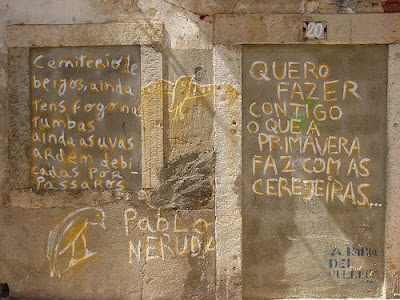 Cemiterio de
beijos, ainda
tens fogo nas
tumbas
ainda as uvas
ardem debi-
cadas por
Passaros
Pablo
NERUDA
20
QUERO
FAZER
CONTIGO
O QUE A
PRIMAVERA
FAZ COM AS
CEREJEIRAS...
A
DEL